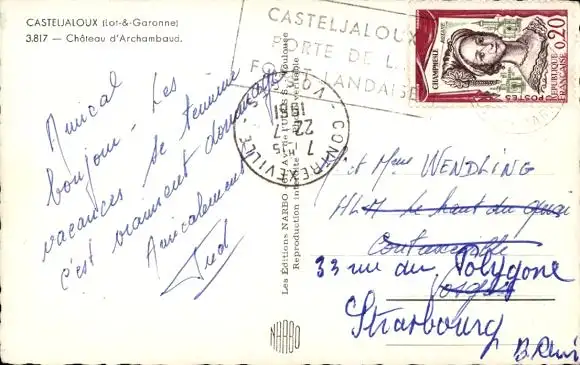 CASTELJALOUX (Lot-&-Garonne)
3.817 — Château d'Archambaud.
CASTELJALOUX
PORTE DE L
FORÊT LANDAISE
CHAMPMESLÉ
0,20
POSTES
RÉPUBLIQUE FRANÇAISE
CONTREXEVILLE
7 H 15
22 7
1961
VOSGES
Amical
bonjour - Les
vacances se termine
c'est vraiment dommage
Amicalement
Fred
Les Éditions NARBO
Reproduction interdite
NARBO
et Mme WENDLING
HLM Le haut du
Contrexeville
33 rue du Polygone
Vosges
Strasbourg
B. Rhin